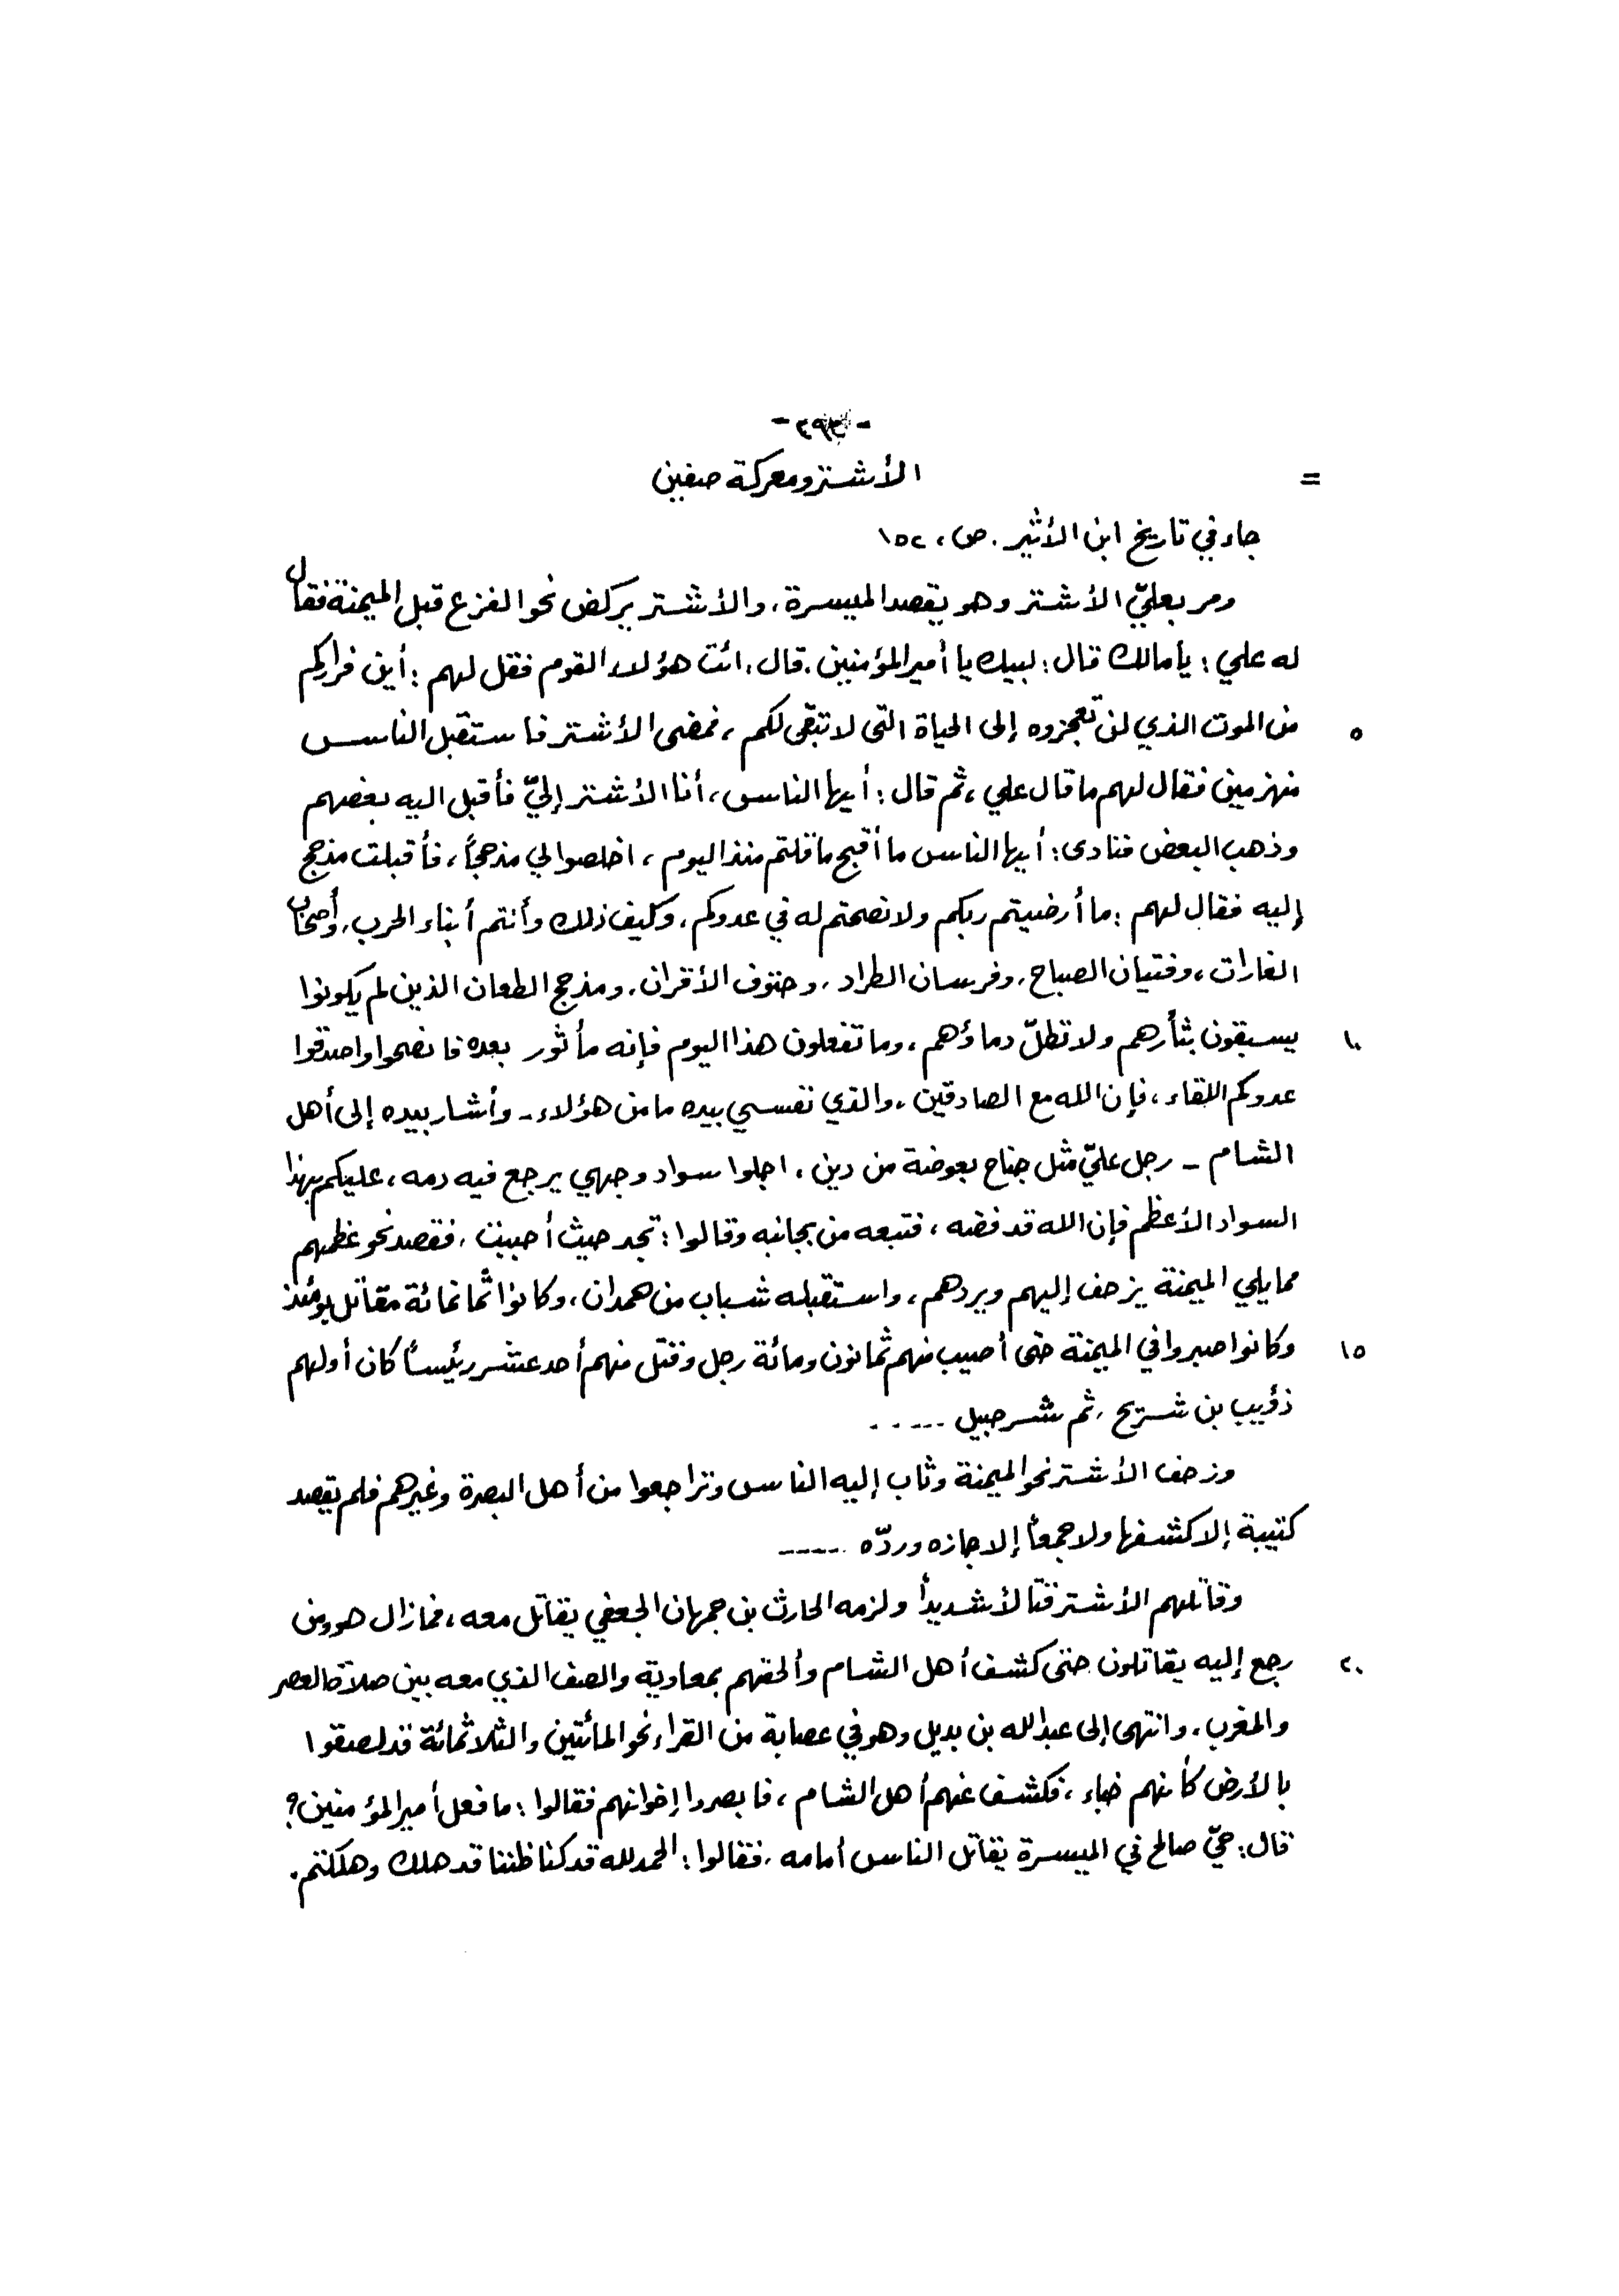 = الأشتر ومعركة صفين
جاء في تاريخ ابن الأثير . ص، ١٥٢
ومر بعليّ الأشتر وهو يقصد الميسرة، والأشتر يركض نحو الفزع قبل الميمنة فقال
له علي : يا مالك قال : لبيك يا أمير المؤمنين ، قال ، ائت هؤلاء القوم فقل لهم : أين فراركم
٥ من الموت الذي لن تعجزوه إلى الحياة التي لا تبقى لكم ، فمضى الأشتر فاستقبل الناس
منهزمين فقال لهم ما قال علي ، ثم قال : أيها الناس ، أنا الأشتر إليّ فأقبل اليه بعضهم
وذهب البعض فنادى : أيها الناس ما أقبح ما قلتم منذ اليوم ، اخلصوا لي مذحجاً ، فأقبلت مذحج
إليه فقال لهم : ما أرضيتم ربكم ولا نصحتم له في عدوكم ، وكيف ذلك وأنتم أبناء الحرب ، وأصحاب
الغارات ، وفتيان الصباح ، وفرسان الطراد ، وحتوف الأقران ، ومذحج الطعان الذين لم يكونوا
١٠ يسبقون بثأرهم ولا تطلّ دماؤهم ، وما تفعلون هذا اليوم فإنه مأثور بعده فانصحوا واصدقوا
عدوكم اللقاء ، فإن الله مع الصادقين ، والذي نفسي بيده ما من هؤلاء - وأشار بيده إلى أهل
الشام - رجل عليّ مثل جناح بعوضة من دين ، اجلوا سواد وجهي يرجع فيه دمه ، عليكم بهذا
السواد الأعظم فإن الله قد فضه ، فتبعه من بجانبه وقالوا : تجد حيث أحببت ، فقصد نحو عظمهم
مما يلي الميمنة يزحف إليهم ويردهم ، واستقبله شباب من همدان ، وكانوا ثمانمائة مقاتل يومئذ
١٥ وكانوا صبروا في الميمنة حتى أصيب منهم ثمانون ومائة رجل وقتل منهم أحد عشر رئيساً كان أولهم
ذؤيب بن شريح ، ثم شرحبيل -----
وزحف الأشتر نحو الميمنة وثاب إليه الناس وتراجعوا من أهل البصرة وغيرهم فلم يقصد
كتيبة إلا كشفها ولا جمعاً إلا جازه وردّه -----
وقاتلهم الأشتر قتالاً شديداً ولزمه الحارث بن جمهان الجعفي يقاتل معه ، فما زال هو ومن
٢٠ رجع إليه يقاتلون حتى كشف أهل الشام وألحقهم بمعاوية والصف الذي معه بين صلاة العصر
والمغرب ، وانتهى إلى عبدالله بن بديل وهو في عصابة من القراء نحو المائتين والثلاثمائة قد لصقوا
بالأرض كأنهم خباء ، فكشف عنهم أهل الشام ، فابصروا إخوانهم فقالوا : ما فعل أمير المؤمنين ؟
قال : حيّ صالح في الميسرة يقاتل الناس أمامه ، فقالوا : الحمد لله قد كنا ظننا قد هلك وهلكتم .